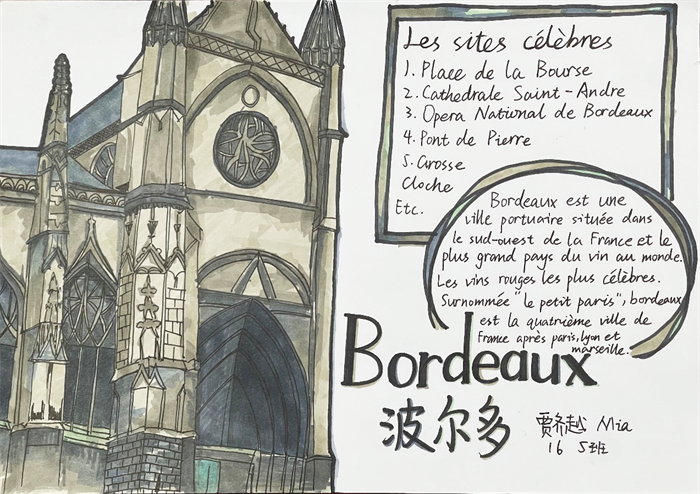 Les sites célèbres
1. Place de la Bourse
2. Cathedrale Saint-Andre
3. Opera National de Bordeaux
4. Pont de Pierre
5. Grosse
Cloche
Etc.
Bordeaux est une
ville portuaire située dans
le sud-ouest de la France et le
plus grand pays du vin au monde.
Les vins rouges les plus célèbres.
Surnommée "le petit paris", bordeaux
est la quatrième ville de
France après paris, lyon et
marseille.
Bordeaux
波尔多
贾乔越 Mia
16 5班